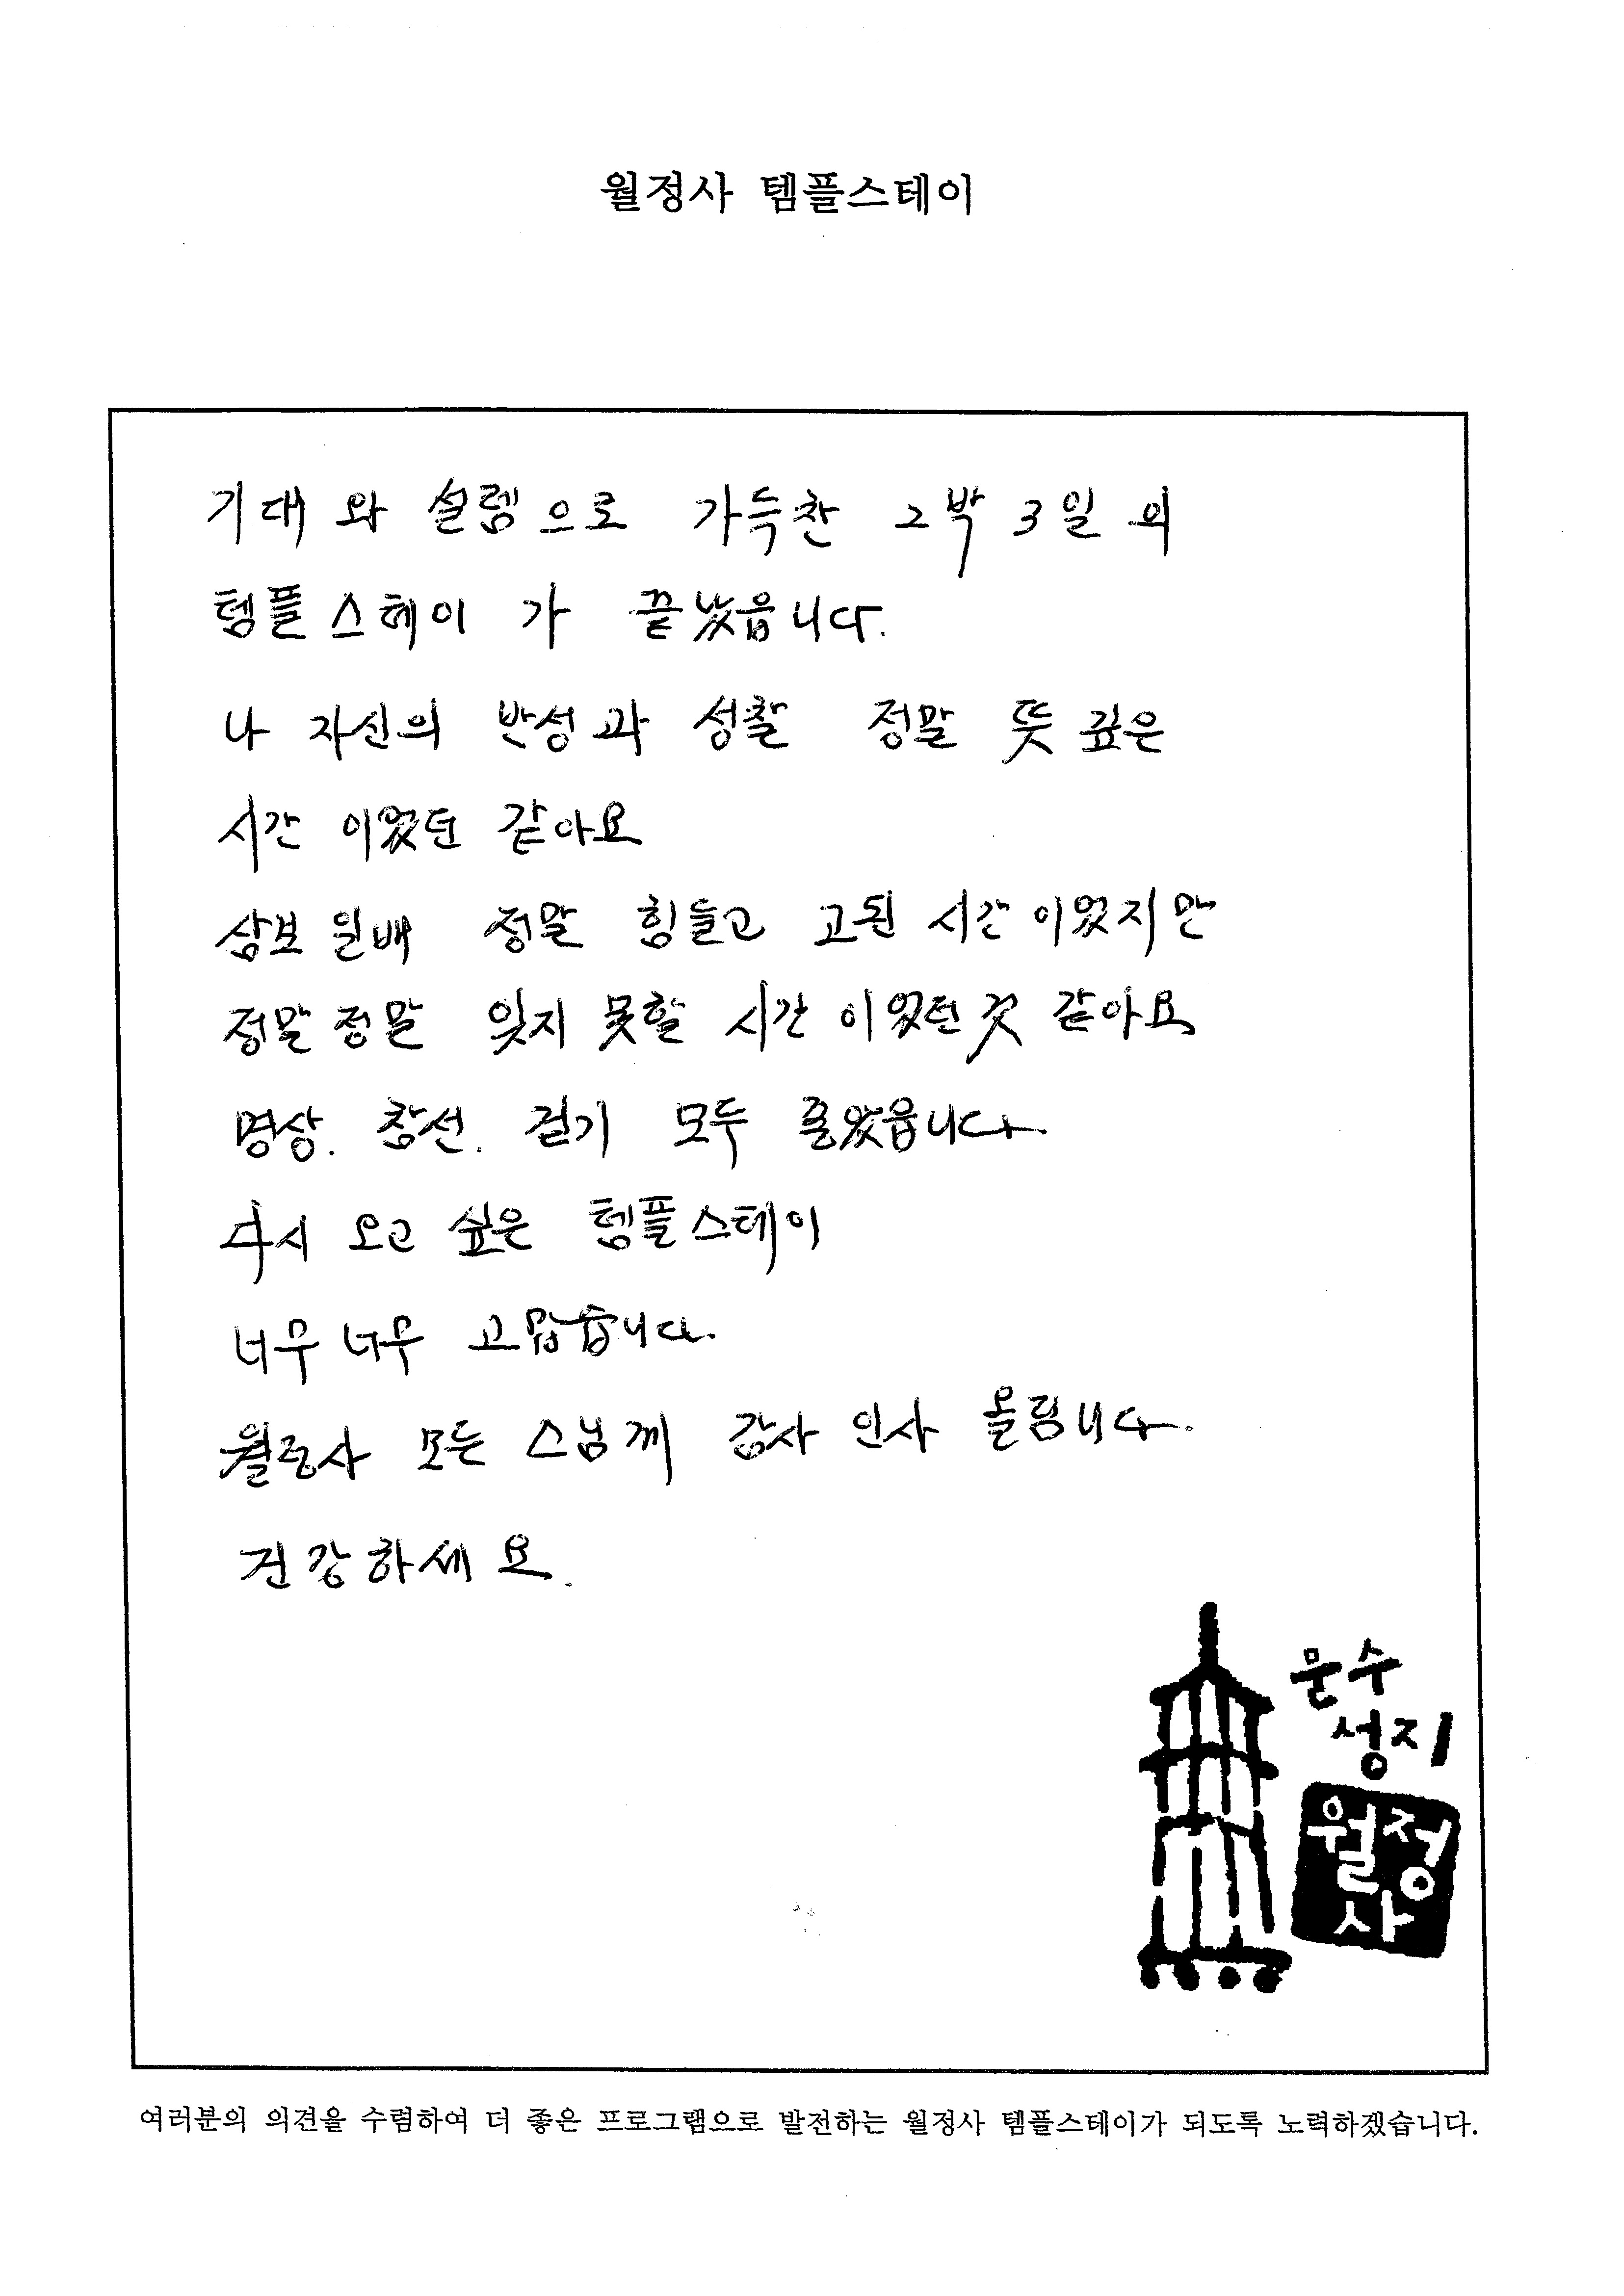 월정사 템플스테이
기대와 설렘으로 가득찬 2박 3일의
템플스테이가 끝났읍니다.
나 자신의 반성과 성찰 정말 뜻 깊은
시간 이었던 같아요
삼보 일배 정말 힘들고 고된 시간 이었지만
정말 정말 잊지 못할 시간 이었던것 같아요
명상. 참선. 걷기 모두 좋았읍니다.
다시 오고 싶은 템플스테이
너무 너무 고맙습니다.
월정사 모든 스님께 감사 인사 올림니다.
건강하세요.
문수
성지
월정
사
여러분의 의견을 수렴하여 더 좋은 프로그램으로 발전하는 월정사 템플스테이가 되도록 노력하겠습니다.